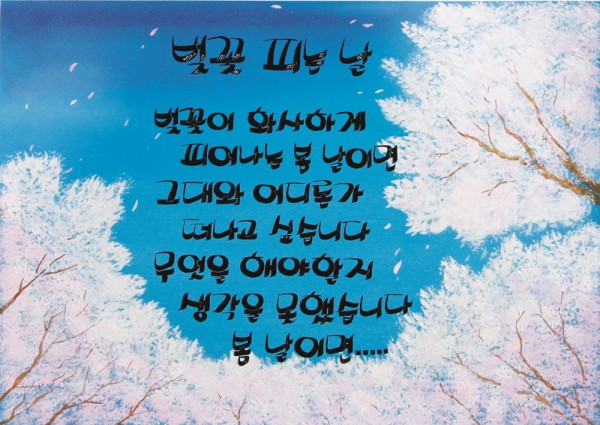 벚꽃 피는 날
벚꽃이 화사하게
피어나는 봄 날이면
그대와 어디론가
떠나고 싶습니다
무엇을 해야할지
생각을 못했습니다
봄 날이면.....